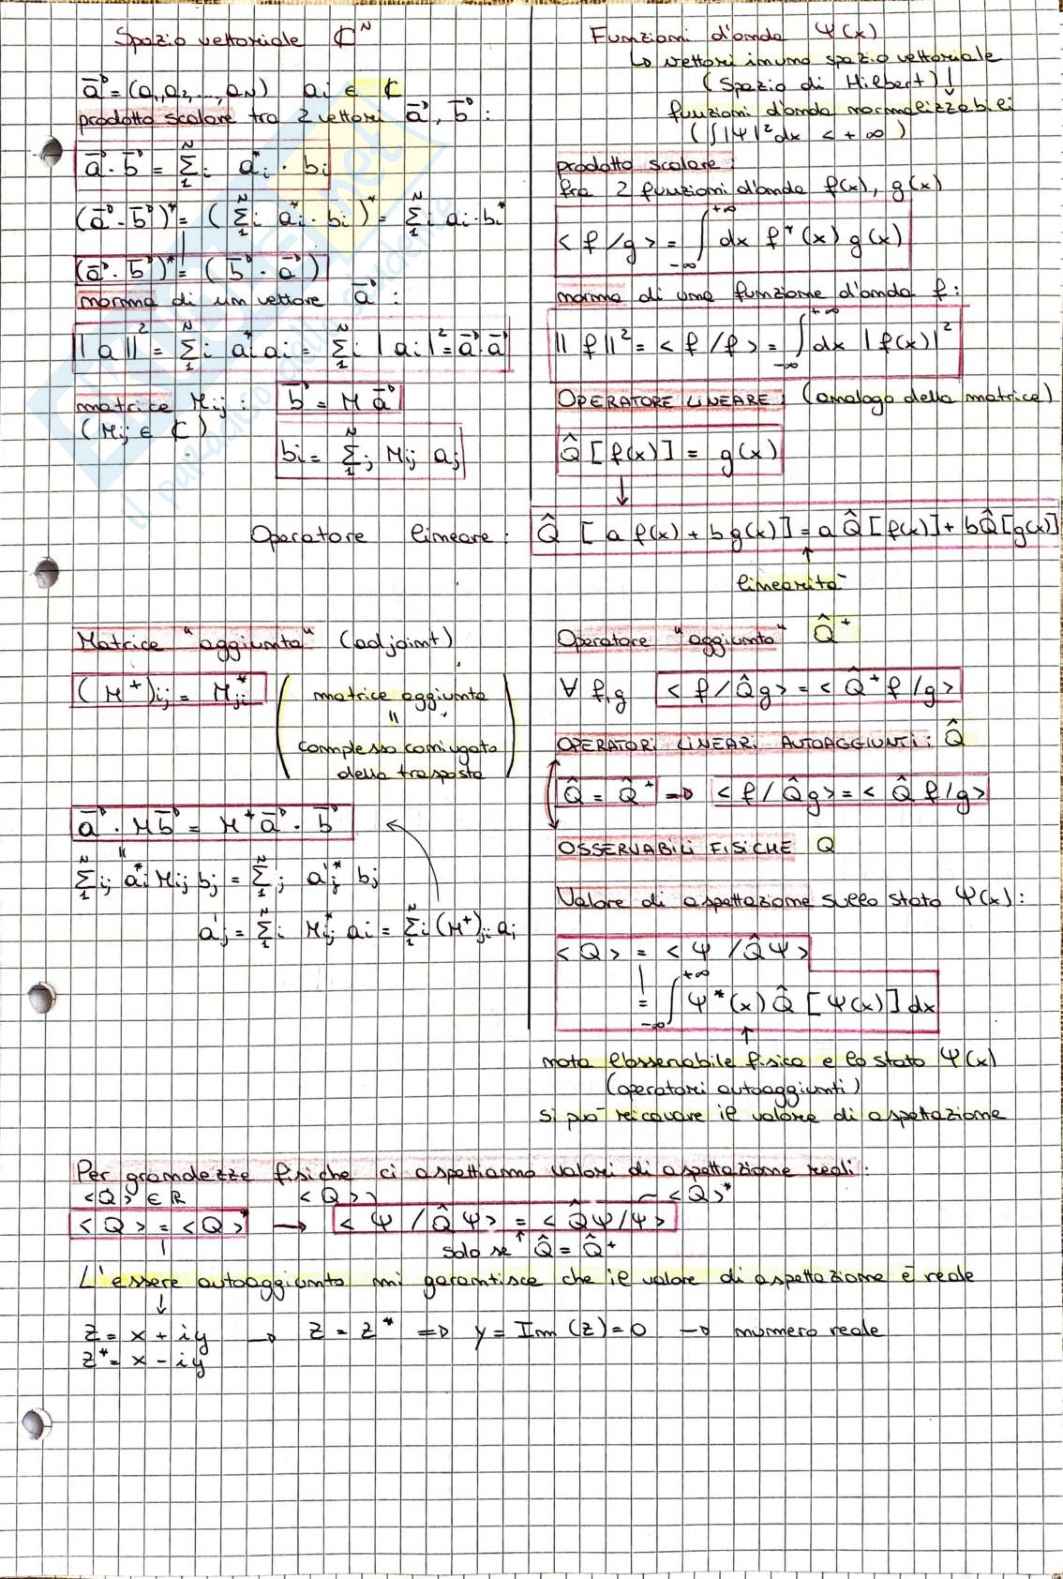 Spazio vettoriale ℂᴺ
a⃗ = (a₁, a₂, ..., a_N) aᵢ ∈ ℂ
prodotto scalare tra 2 vettori a⃗, b⃗ :
a⃗ · b⃗ = Σ₁ᴺᵢ aᵢ* · bᵢ
(a⃗ · b⃗)* = (Σ₁ᴺᵢ aᵢ* · bᵢ)* = Σ₁ᴺᵢ aᵢ · bᵢ*
(a⃗ · b⃗)* = (b⃗ · a⃗)
norma di un vettore a⃗ :
||a||² = Σ₁ᴺᵢ aᵢ* aᵢ = Σ₁ᴺᵢ |aᵢ|² = a⃗ · a⃗
matrice Mᵢⱼ : b⃗ = M a⃗
(Mᵢⱼ ∈ ℂ)
bᵢ = Σ₁ᴺⱼ Mᵢⱼ aⱼ
Funzioni d'onda Ψ(x)
↳ vettori in uno spazio vettoriale
(Spazio di Hilbert) ↓
funzioni d'onda normalizzabili
(∫|Ψ|² dx < +∞)
prodotto scalare :
fra 2 funzioni d'onda f(x), g(x)
< f / g > = ∫₋∞⁺∞ dx f*(x) g(x)
norma di una funzione d'onda f :
||f||² = < f / f > = ∫₋∞⁺∞ dx |f(x)|²
OPERATORE LINEARE : (analogo della matrice)
Q̂ [f(x)] = g(x)
↓
Operatore lineare : Q̂ [a f(x) + b g(x)] = a Q̂ [f(x)] + b Q̂ [g(x)]
↑
linearità
Matrice "aggiunta" (adjoint)
(M⁺)ᵢⱼ = Mⱼᵢ*
( matrice aggiunta
"
complesso coniugato
della trasposta )
a⃗ · M b⃗ = M⁺ a⃗ · b⃗
"
Σ₁ᴺᵢⱼ aᵢ* Mᵢⱼ bⱼ = Σ₁ᴺⱼ a'ⱼ* bⱼ
a'ⱼ = Σ₁ᴺᵢ Mᵢⱼ* aᵢ = Σ₁ᴺᵢ (M⁺)ⱼᵢ aᵢ
Operatore "aggiunto" Q̂⁺
∀ f,g < f / Q̂ g > = < Q̂⁺ f / g >
OPERATORI LINEARI AUTOAGGIUNTI : Q̂
Q̂ = Q̂⁺ ⇒ < f / Q̂ g > = < Q̂ f / g >
OSSERVABILI FISICHE Q
Valore di aspettazione sullo stato Ψ(x) :
< Q > = < Ψ / Q̂ Ψ >
= ∫₋∞⁺∞ Ψ*(x) Q̂ [Ψ(x)] dx
↑
nota l'osservabile fisica e lo stato Ψ(x)
(operatori autoaggiunti)
si può ricavare il valore di aspettazione
Per grandezze fisiche ci aspettiamo valori di aspettazione reali :
<Q> ∈ ℝ <Q> <Q>*
<Q> = <Q>* → < Ψ / Q̂ Ψ > = < Q̂ Ψ / Ψ >
↑
solo se Q̂ = Q̂⁺
L'essere autoaggiunto mi garantisce che il valore di aspettazione è reale
↓
z = x + iy → z = z* ⇒ y = Im (z) = 0 → numero reale
z* = x - iy